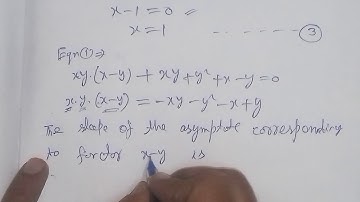 x-1=0 〃
x=1 - - - - - - ③
Eqn①⇒
xy.(x-y) + xy+y²+x-y=0
x.y.(x-y) = -xy-y²-x+y
The slope of the asymptote corresponding
to factor x-y is